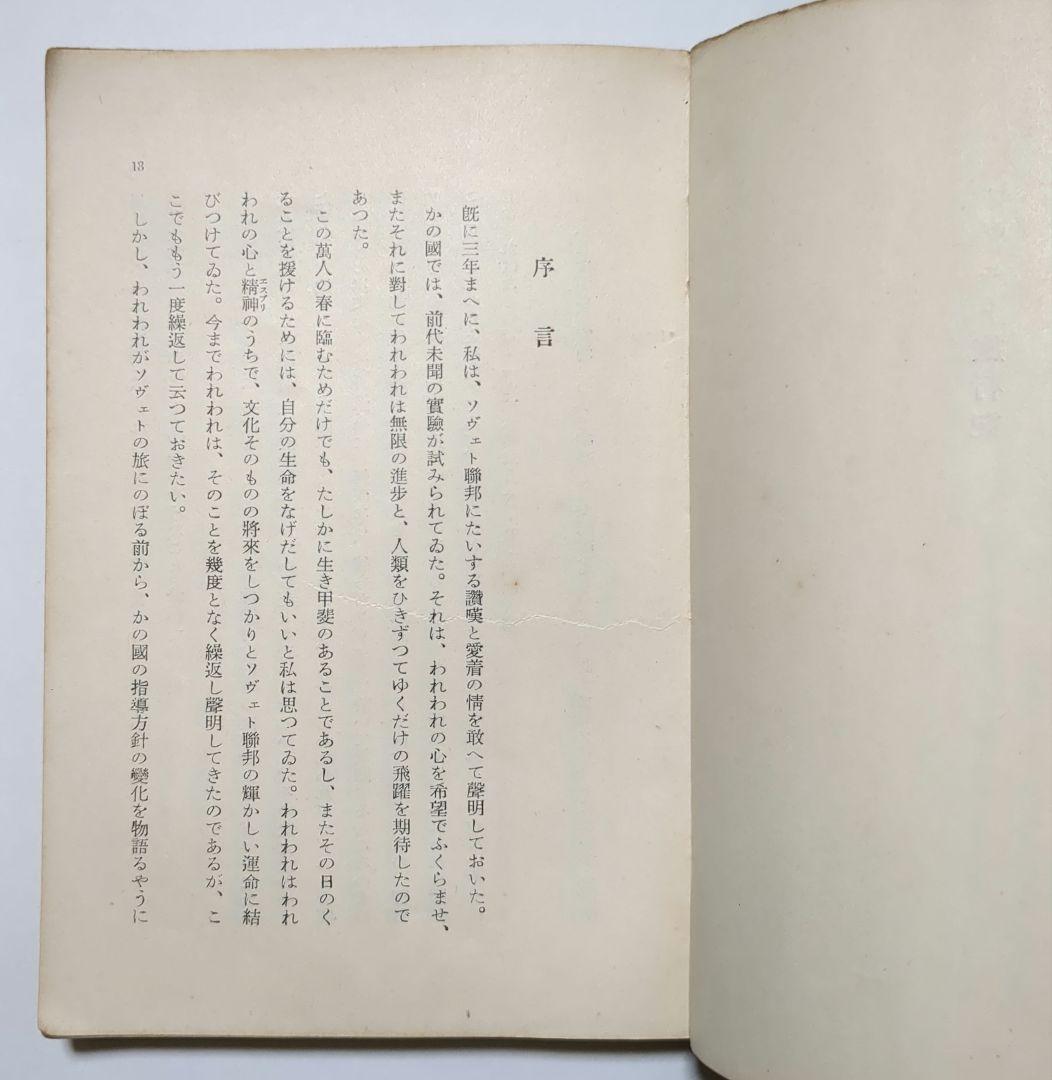 序言
既に三年まへに、私は、ソヴェト聯邦にたいする讚嘆と愛着の情を敢へて聲明しておいた。
かの國では、前代未聞の實驗が試みられてゐた。それは、われわれの心を希望でふくらませ、
またそれに對してわれわれは無限の進步と、人類をひきずつてゆくだけの飛躍を期待したので
あつた。
この萬人の春に臨むためだけでも、たしかに生き甲斐のあることであるし、またその日のく
ることを援けるためには、自分の生命をなげだしてもいいと私は思つてゐた。われわれはわれ
われの心と精神エスプリのうちで、文化そのものの將來をしつかりとソヴェト聯邦の輝かしい運命に結
びつけてゐた。今までわれわれは、そのことを幾度となく繰返し聲明してきたのであるが、こ
こでももう一度繰返して云つておきたい。
しかし、われわれがソヴェトの旅にのぼる前から、かの國の指導方針の變化を物語るやうに
13